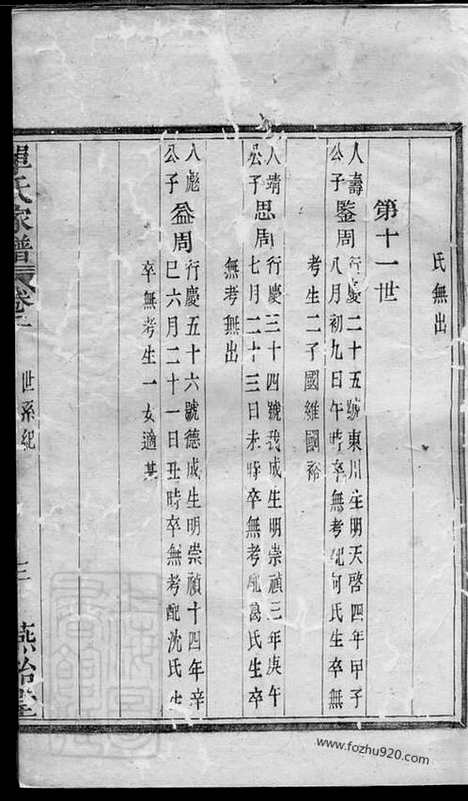 氏無出
第十一世
人壽公子鑒周行慶二十五號東川生明天啓四年甲子
八月初九日午時卒無考配何氏生卒無
考生二子國維國裕
人靖公子思周行慶三十四號我成生明崇禎三年庚午
七月二十三日未時卒無考配葛氏生卒
無考無出
人彪公子益周行慶五十六號德成生明崇禎十四年辛
巳六月二十一日丑時卒無考配沈氏生
卒無考生一女適某
氏家譜
世系紀
三
燕詒堂
www.fozhu920.com